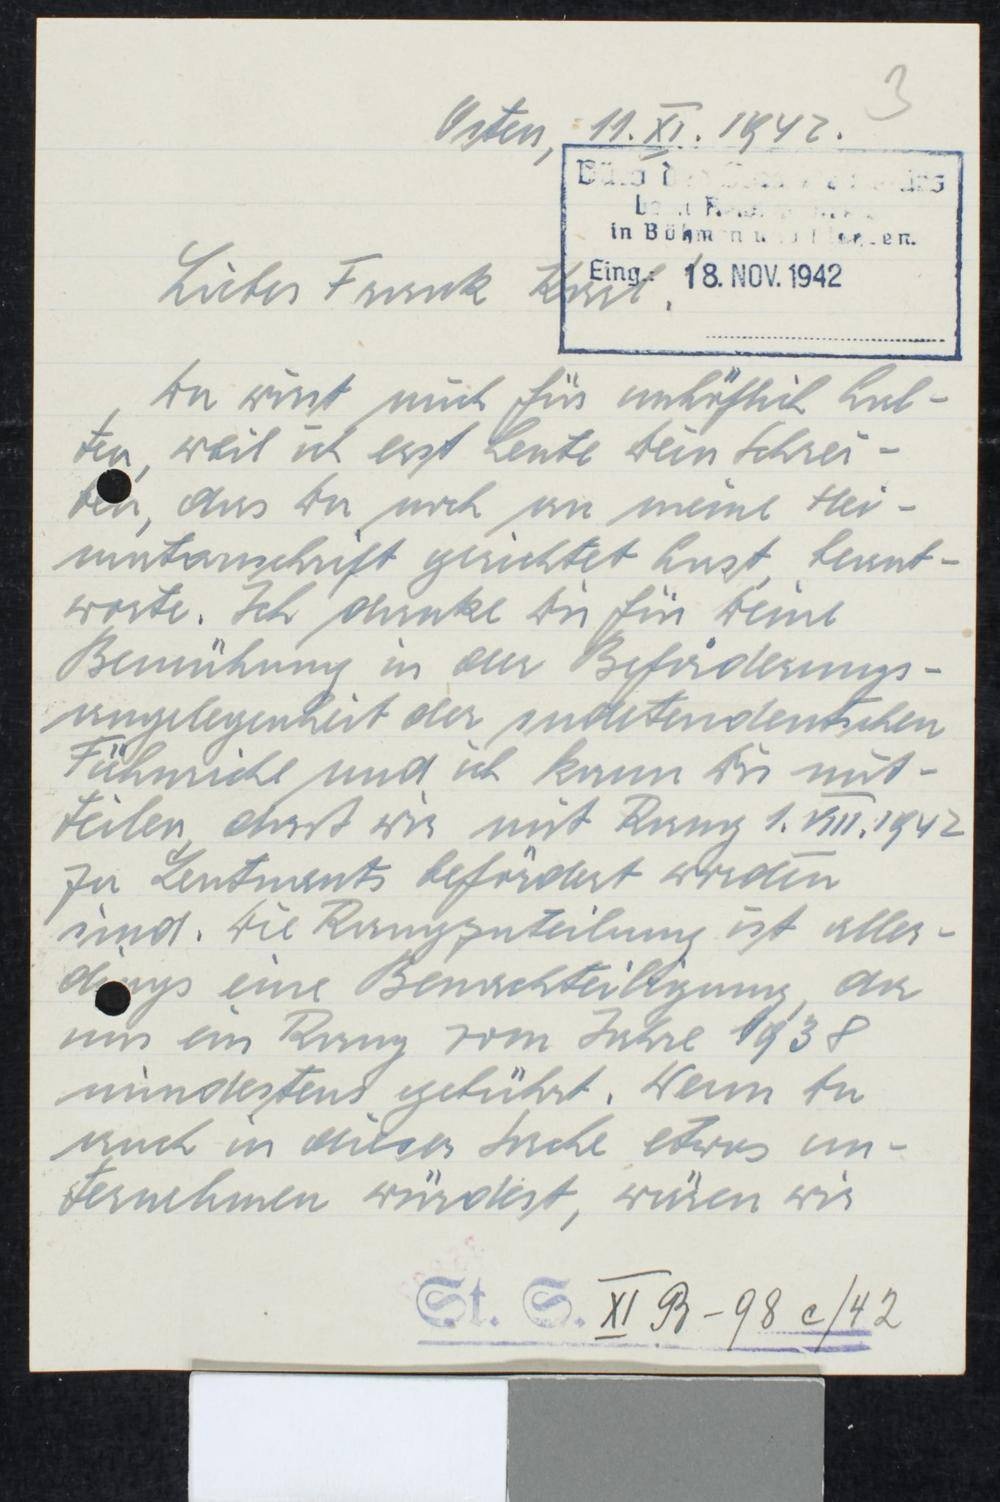 3
Osten, 11. XI. 1942.
Büro des Staatssekretärs
beim Reichsprotektor
in Böhmen und Mähren.
Eing.: 18. NOV. 1942
Lieber Frank Karl!
Du wirst mich für unhöflich hal-
ten, weil ich erst heute Dein Schrei-
ben, das Du noch an meine Hei-
matanschrift gerichtet hast, beant-
worte. Ich danke Dir für Deine
Bemühung in der Beförderungs-
angelegenheit der sudetendeutschen
Fähnriche und ich kann Dir mit-
teilen, dass wir mit Rang 1. VIII. 1942
zu Leutnants befördert worden
sind. Die Rangzuteilung ist aller-
dings eine Benachteiligung, da
uns ein Rang vom Jahre 1938
mindestens gebührt. Wenn Du
auch in dieser Sache etwas un-
ternehmen würdest, wären wir
St. S. XI B - 98 c/42